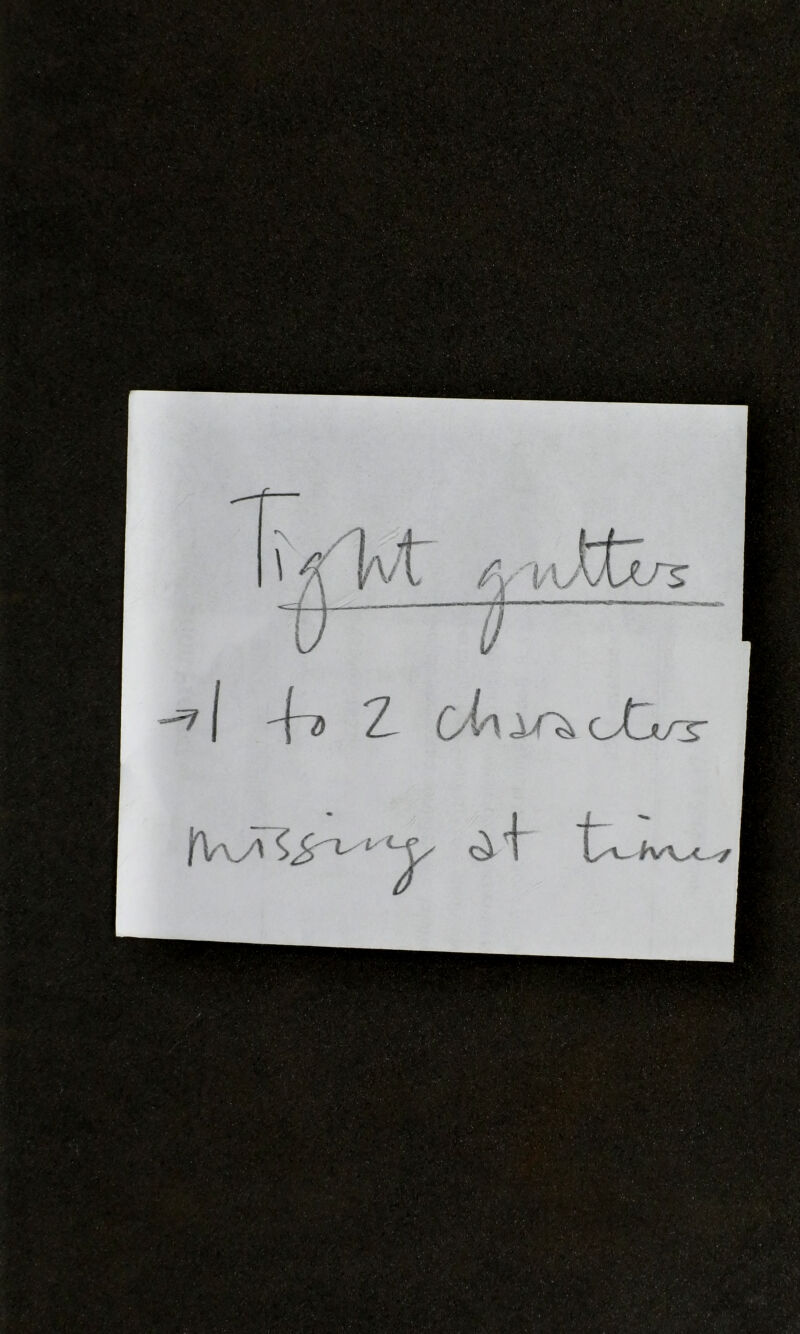 Tight gutters
→1 to 2 characters
missing at times